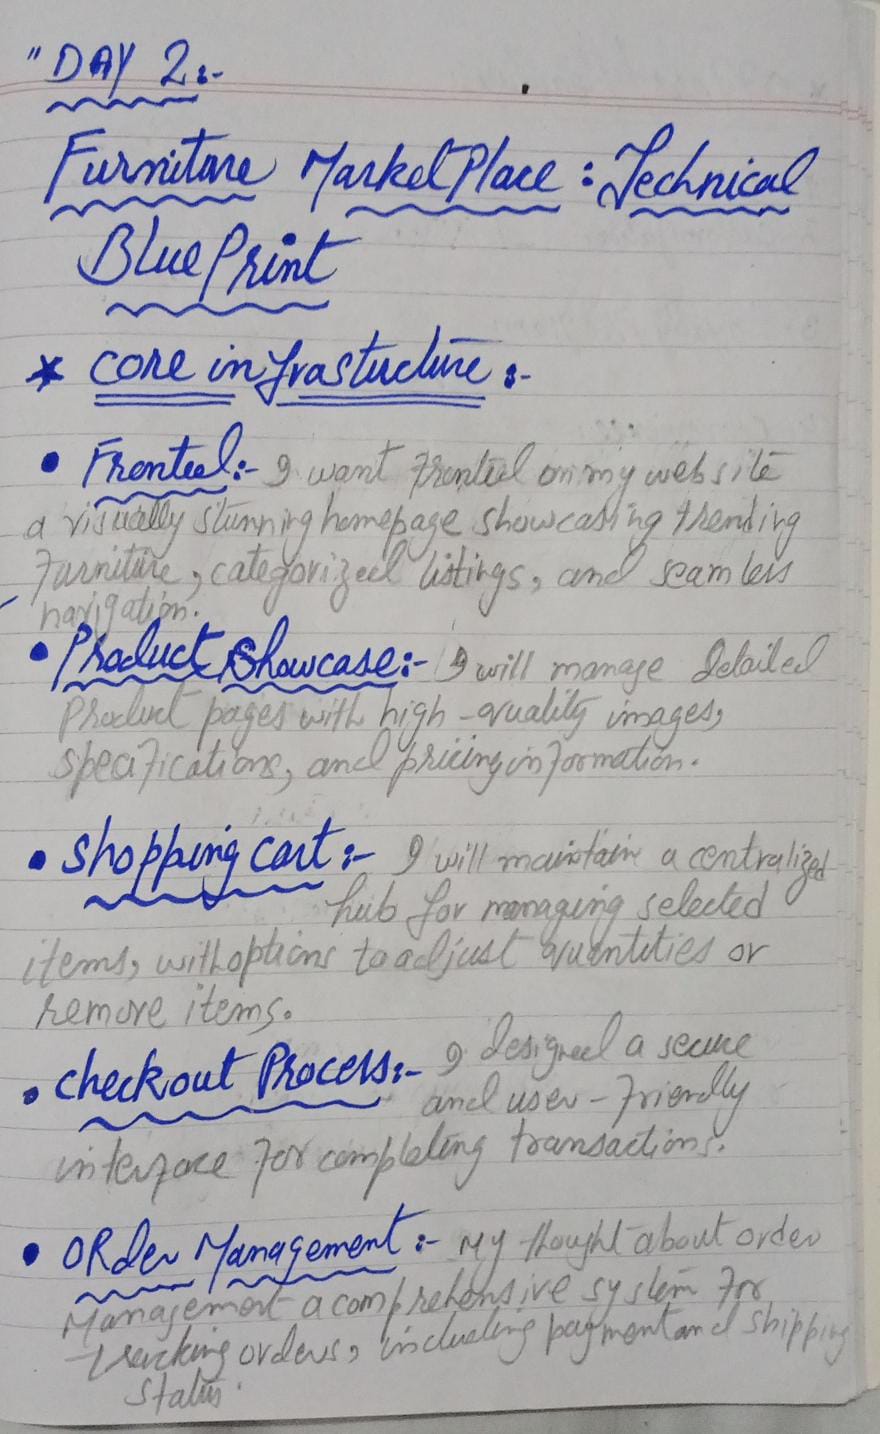 "DAY 2:-
Furniture MarketPlace : Technical
BluePrint
* core infrastucture :-
• Fronted:- I want fronted on my website
a visually stunning homepage showcasing trending
furniture, categorized listings, and seamless
navigation.
• Product Showcase:- I will manage Detailed
Product pages with high-quality images,
specifications, and pricing information.
• Shopping Cart:- I will maintain a centralized
hub for managing selected
items, with options to adjust quantities or
remove items.
• Checkout Process:- I designed a secure
and user-friendly
interface for completing transactions.
• ORder Management:- My thought about order
Management a comprehensive system for
tracking orders, including payment and shipping
status.